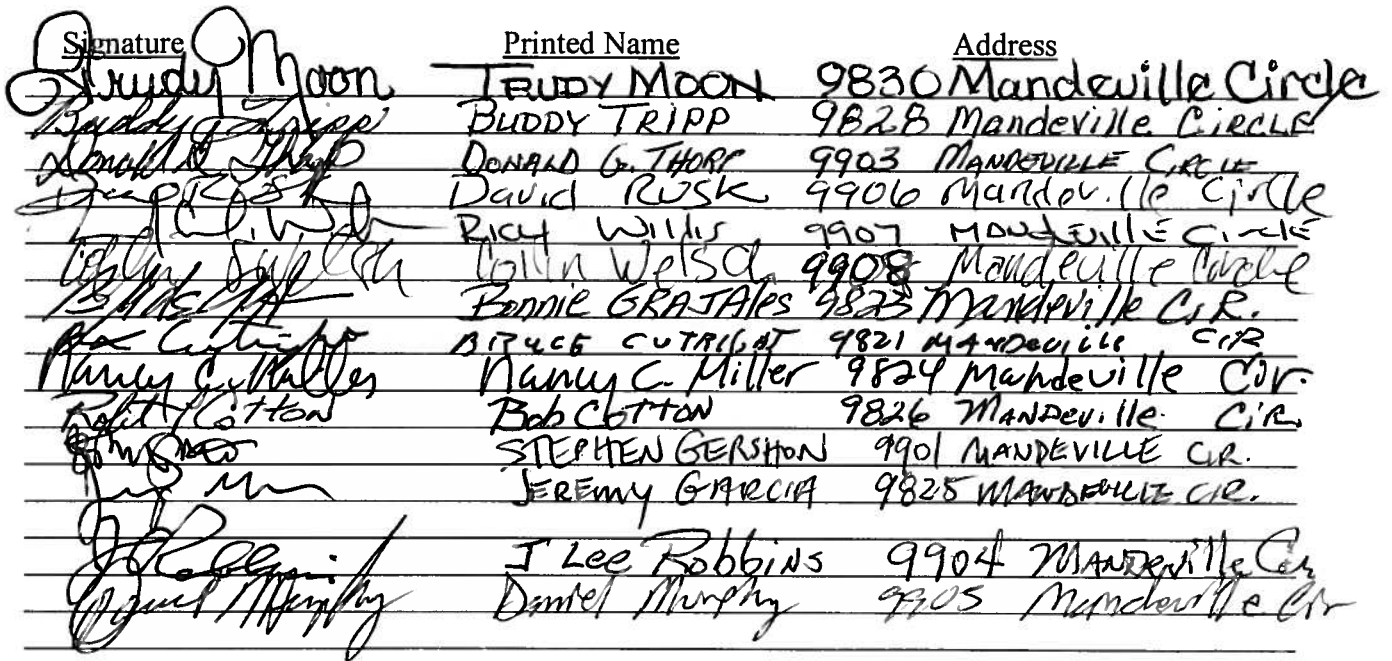 Signature Printed Name Address
Trudy Moon TRUDY MOON 9830 Mandeville Circle
Buddy Tripp BUDDY TRIPP 9828 Mandeville CIRCLE
Donald G Thorp DONALD G. THORP 9903 MANDEVILLE CIRCLE
David RUSK 9906 Mandeville Circle
Rich Willis 9907 MANDEVILLE CircLE
Colin Welsch 9908 Mandeville Circle
Bonnie GRAJAles 9823 Mandeville CiR.
BRUCE CUTRIGHT 9821 MANDeville CiR
Nancy C. Miller Nancy C. Miller 9824 Mandeville Cir.
Cotton Bob COTTON 9826 MANDeville CiR.
STEPHEN GERSHON 9901 MANDEVILLE CIR.
JEREMY GARCIA 9825 MANDEVILLE CIR.
J Lee Robbins 9904 MANDeville Cir
Daniel Murphy Daniel Murphy 9905 Mandeville Cir